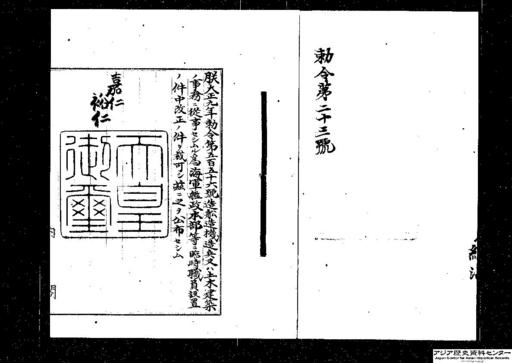 勅令第二十三號
朕大正九年勅令第五百五十六號造船造機造兵又ハ土木建築
ノ事務ニ從事セシムル爲海軍艦政本部等ニ臨時職員設置
ノ件中改正ノ件ヲ裁可シ茲ニ之ヲ公布セシム
嘉仁
裕仁
天皇
御璽
内閣
アジア歴史資料センター
Japan Center for Asian Historical Records